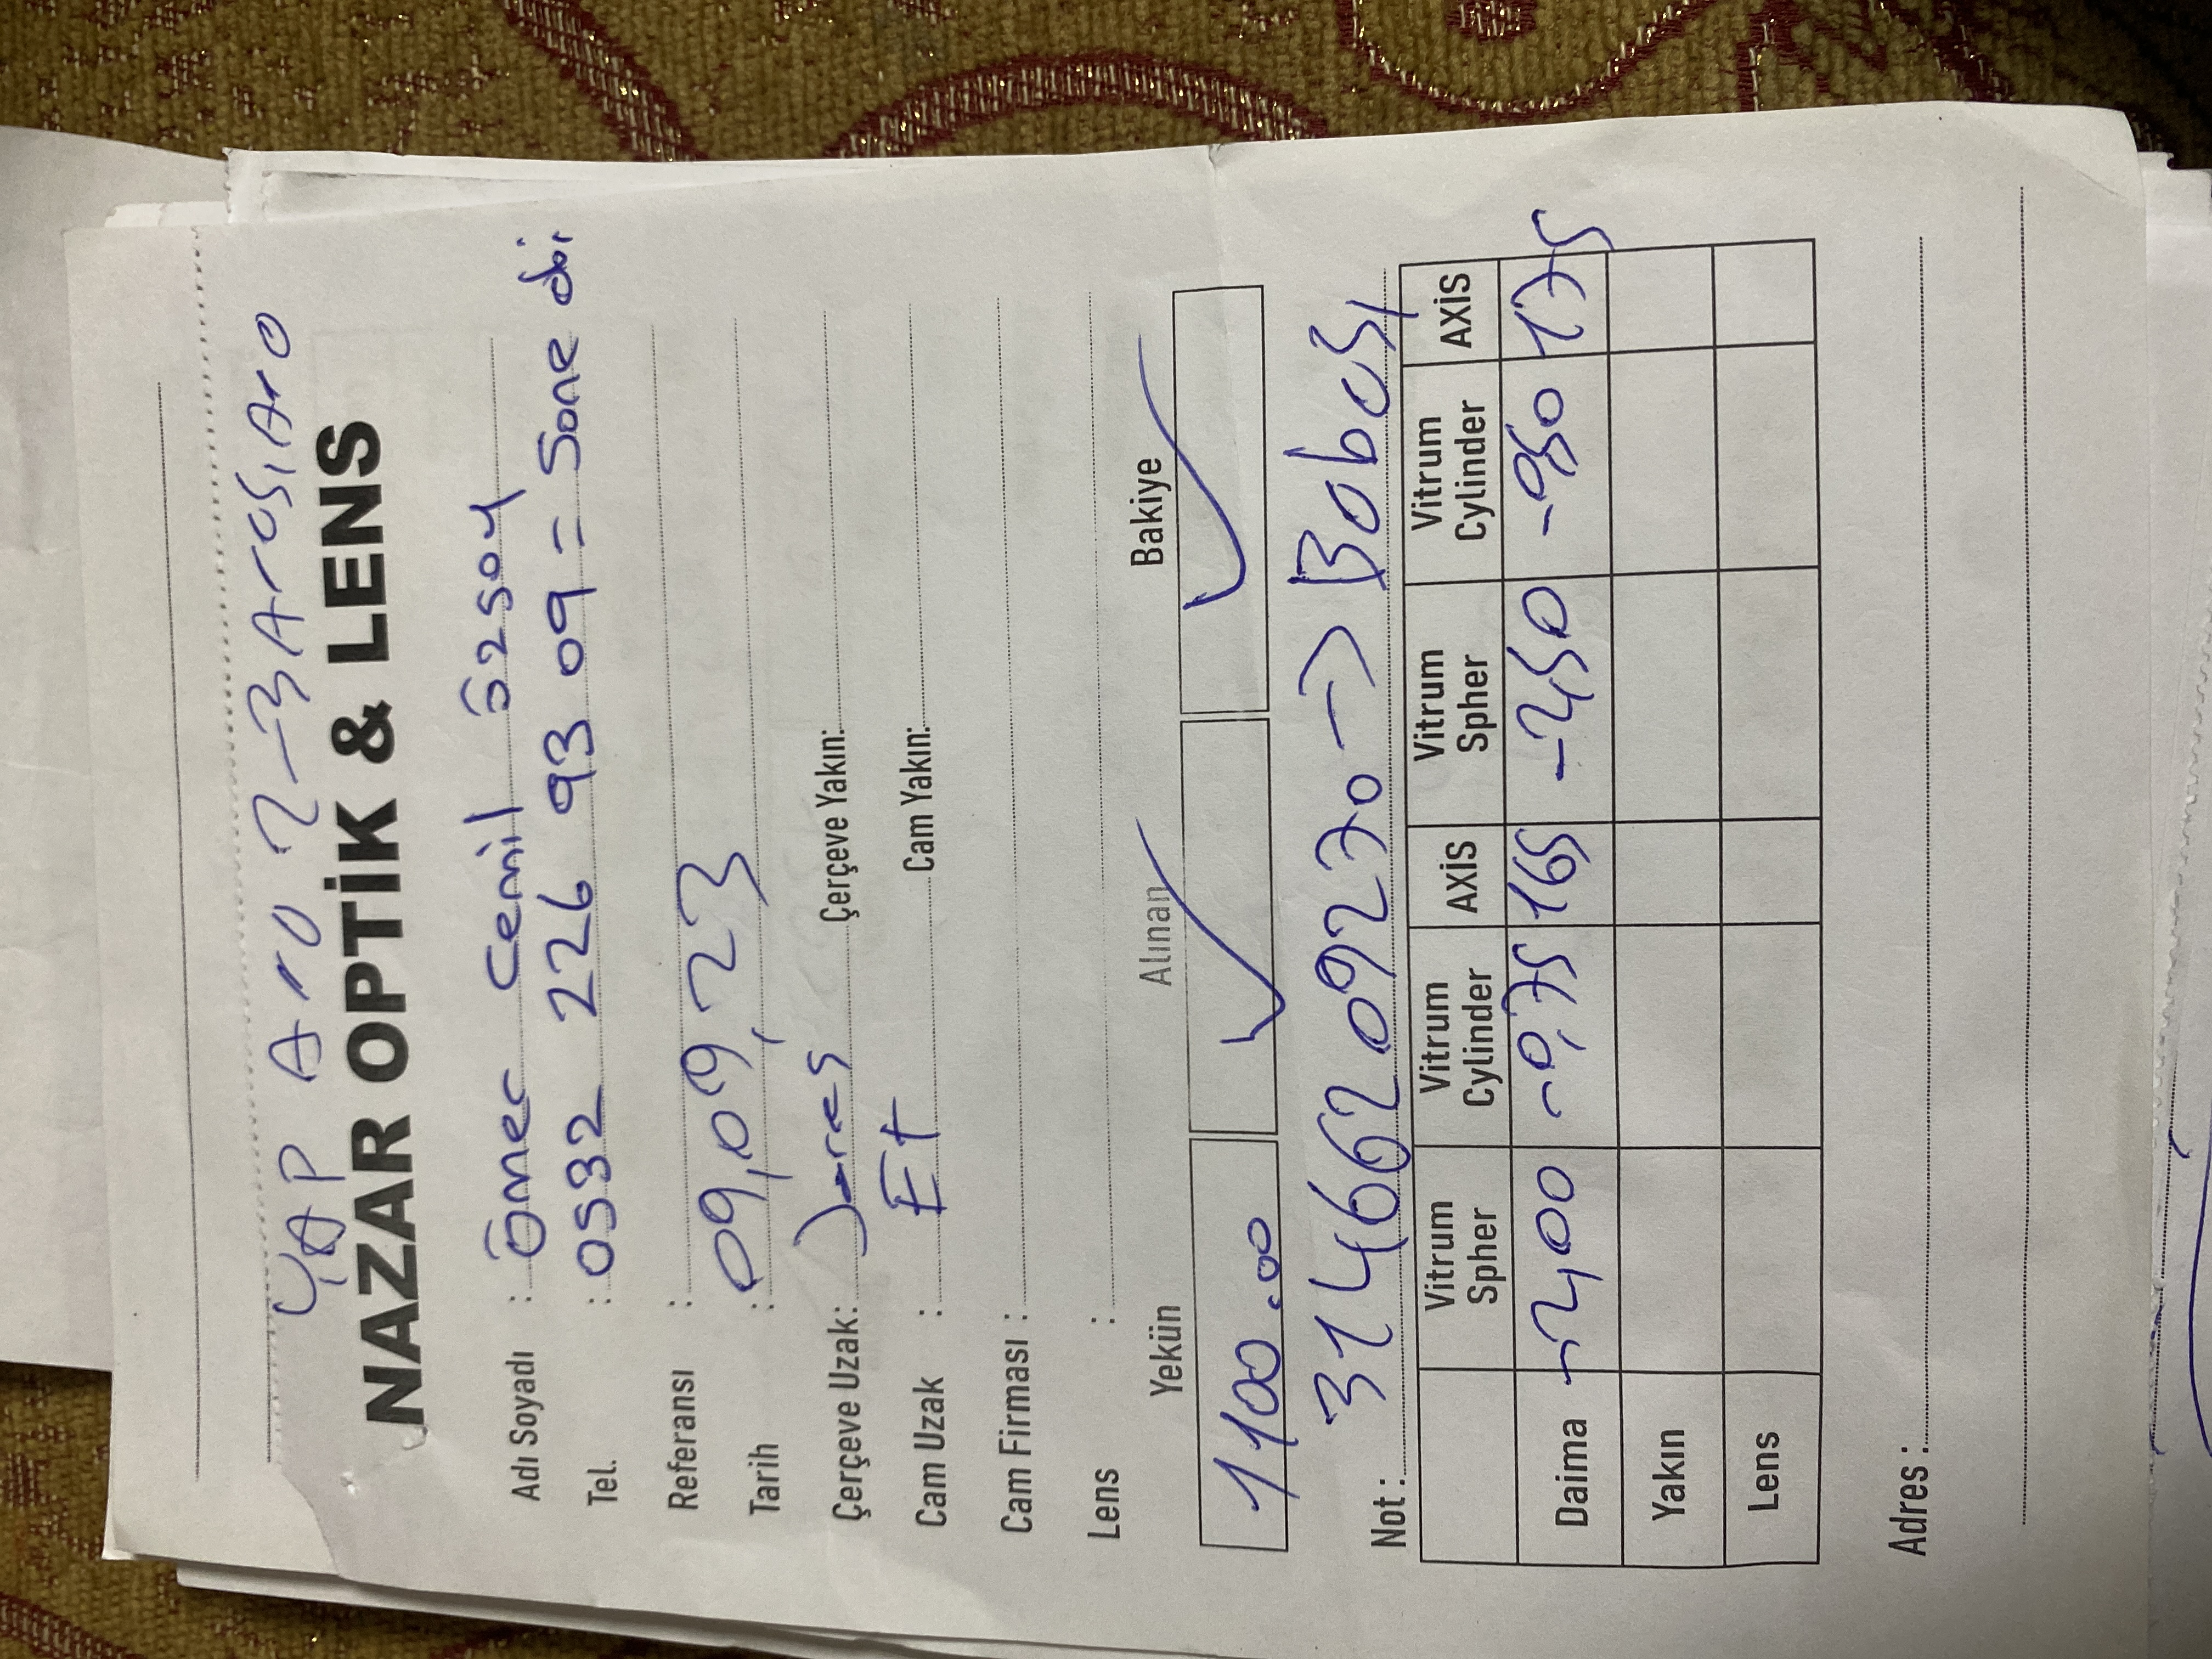 YAP Ara 2-3 Arası, Ara
NAZAR OPTİK & LENS
Adı Soyadı : Ömer Cemil Özsoy
Tel. : 0532 226 93 09 = Sone abi
Referansı :
Tarih : 09,09,23
Çerçeve Uzak: Çerçeve Yakın:
Cam Uzak : Et Cam Yakın:
Cam Firması :
Lens :
Yekün Alınan Bakiye
1100.00 ✓ ✓
Not : 31466209270 -> Babası
Vitrum Spher Vitrum Cylinder AXİS Vitrum Spher Vitrum Cylinder AXİS
Daima -2,00 -0,75 165 -2,50 -0,50 175
Yakın
Lens
Adres :